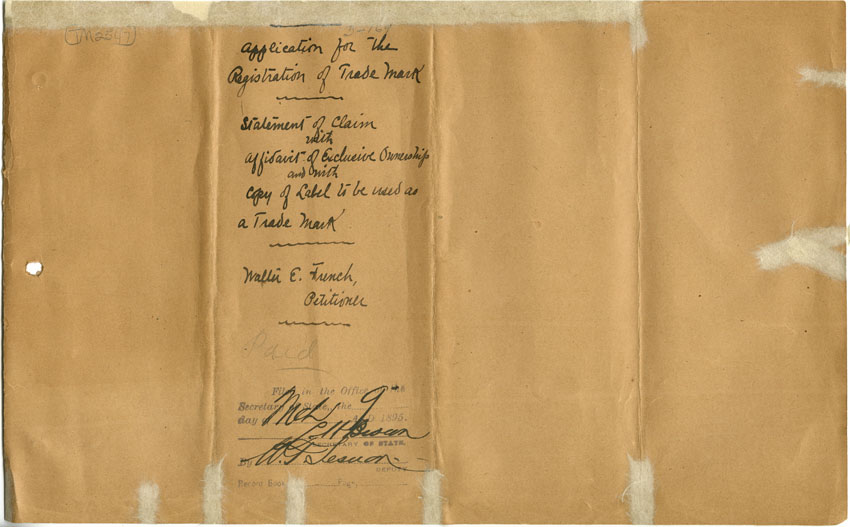 TM2897
Application for the
Registration of Trade Mark
Statement of Claim
with
Affidavit of Exclusive Ownership
and with
Copy of Label to be used as
a Trade Mark
Walter E. French,
Petitioner
Paid
Filed in the Office of the
Secretary of State, the
day Mch 9 A.D. 1895.
C. H. Brown
SECRETARY OF STATE.
By
DEPUTY
Record Book Page